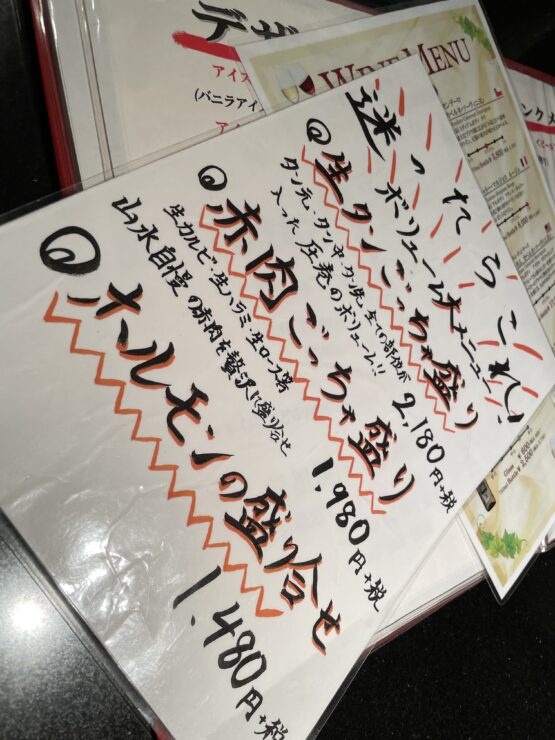 迷ったらこれ!
ボリューム大メニュー
生タンごっちゃ盛り
タン元・タン中・タン先、全ての部位が
入った圧巻のボリューム!!
2,180円+税
赤肉ごっちゃ盛り
生カルビ・生ハラミ・生ロース等
山水自慢の赤肉を贅沢に盛り合せ
1,980円+税
ホルモンの盛り合せ
1,480円+税
WINE MENU
アイス
(バニラアイ
ンクメ